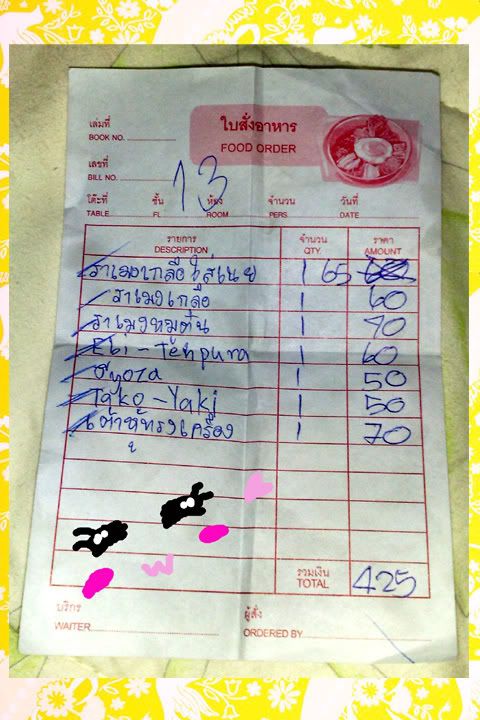 ใบสั่งอาหาร
FOOD ORDER
เล่มที่
BOOK NO.
เลขที่
BILL NO.
13
โต๊ะที่ ชั้น ห้อง จำนวน วันที่
TABLE FL ROOM PERS DATE
รายการ จำนวน ราคา
DESCRIPTION QTY. AMOUNT
ราเมงเกลือใส่เนย 1 65
ราเมงเกลือ 1 60
ราเมงหมูตุ๋น 1 70
Ebi-Tenpura 1 60
Gyoza 1 50
Tako-Yaki 1 50
เต้าหู้ทรงเครื่อง 1 70
รวมเงิน
TOTAL 425
บริกร ผู้สั่ง
WAITER ORDERED BY